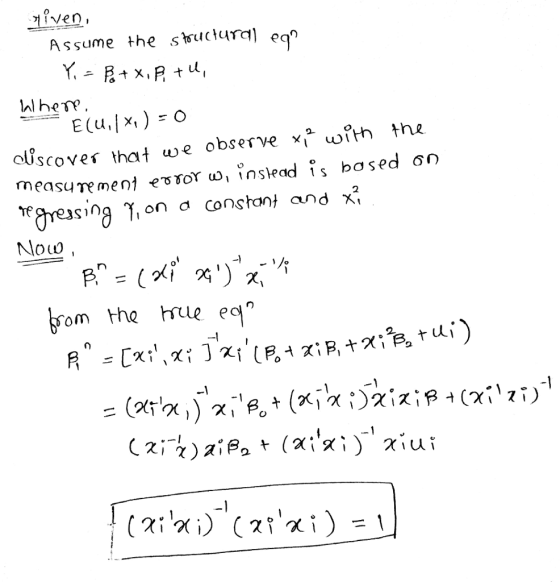 Given,
Assume the structural eqn
Yᵢ = β₀ + xᵢ β₁ + uᵢ
Where,
E(uᵢ | xᵢ) = 0
discover that we observe xᵢ² with the
measurement error wᵢ instead is based on
regressing Yᵢ on a constant and xᵢ²
Now,
β₁ⁿ = (xᵢ' xᵢ')⁻¹ xᵢ⁻¹ʸⁱ
from the true eqn
β₁ⁿ = [xᵢ', xᵢ]⁻¹ xᵢ' (β₀ + xᵢβ₁ + xᵢ²β₂ + uᵢ)
= (xᵢ'xᵢ)⁻¹ xᵢ'β₀ + (xᵢ'xᵢ)⁻¹ xᵢxᵢβ + (xᵢ'xᵢ)⁻¹
(xᵢ⁻¹x) xᵢβ₂ + (xᵢ'xᵢ)⁻¹ xᵢuᵢ
(xᵢ'xᵢ)⁻¹ (xᵢ'xᵢ) = 1